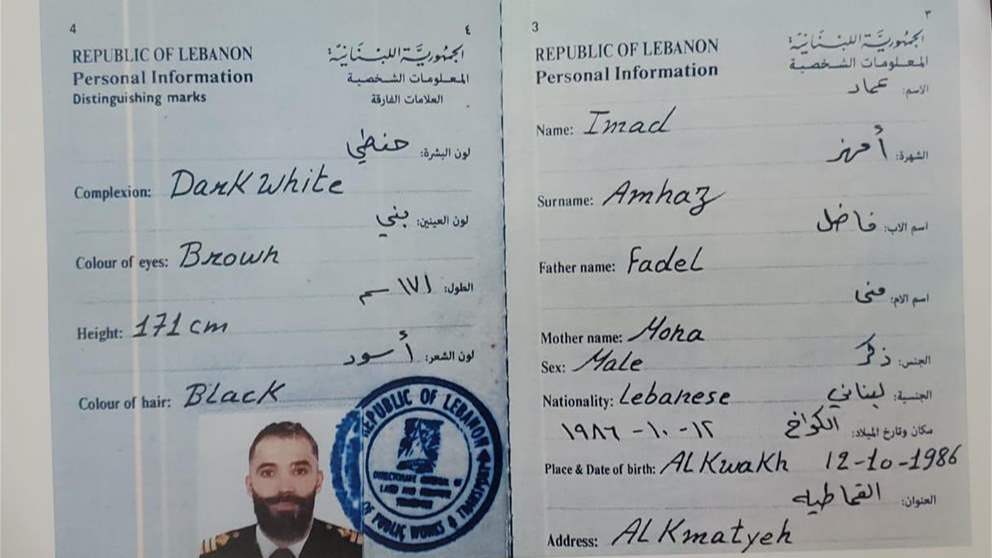 4
٤
REPUBLIC OF LEBANON الجمهوريّة اللبنانيّة
Personal Information المعلومات الشخصية
Distinguishing marks العلامات الفارقة
لون البشرة: حنطي
Complexion: Dark White
لون العينين: بني
Colour of eyes: Brown
الطول: ١٧١ سم
Height: 171 cm
لون الشعر: أسود
Colour of hair: Black
REPUBLIC OF LEBANON
OF PUBLIC WORKS & TRANSPORT
3
٣
REPUBLIC OF LEBANON الجمهوريّة اللبنانيّة
Personal Information المعلومات الشخصية
الاسم: عماد
Name: Imad
الشهرة: أمهز
Surname: Amhaz
اسم الاب: فاضل
Father name: Fadel
اسم الام: منى
Mother name: Mona
الجنس: ذكر
Sex: Male
الجنسية: لبناني
Nationality: Lebanese
مكان وتارخ الميلاد: الكواخ ١٢-١٠-١٩٨٦
Place & Date of birth: AL Kwakh 12-10-1986
العنوان: القماطيه
Address: AL Kmatyeh